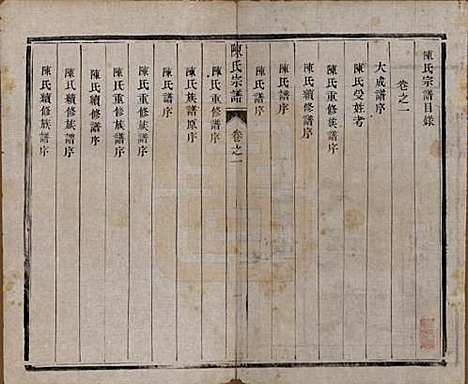 陳氏宗譜目錄
卷之一
陳氏受姓考
大成譜序
陳氏譜序
陳氏重修族譜序
陳氏續修譜序
陳氏譜序
陳氏譜序
陳氏宗譜
卷之一
陳氏重修譜序
陳氏族譜原序
陳氏譜序
陳氏重修族譜序
陳氏重修族譜序
陳氏續修譜序
陳氏續修族譜序
陳氏續修族譜序